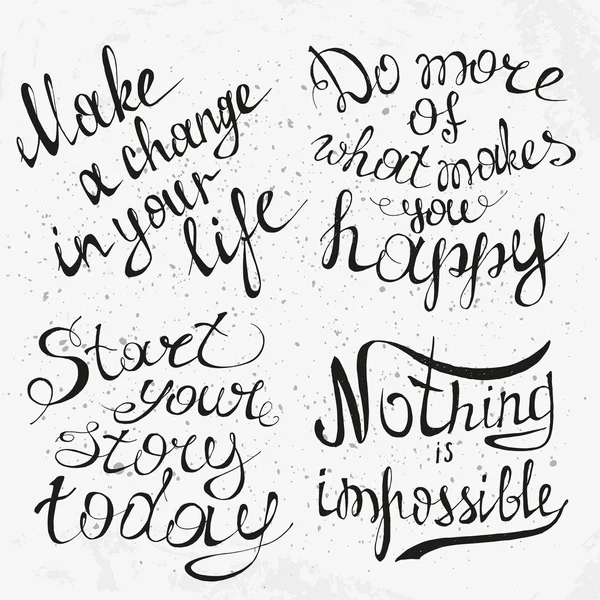 Make
a change
in your
life
Do more
of
what makes
you
happy
Start
your
story
today
Nothing
is
impossible